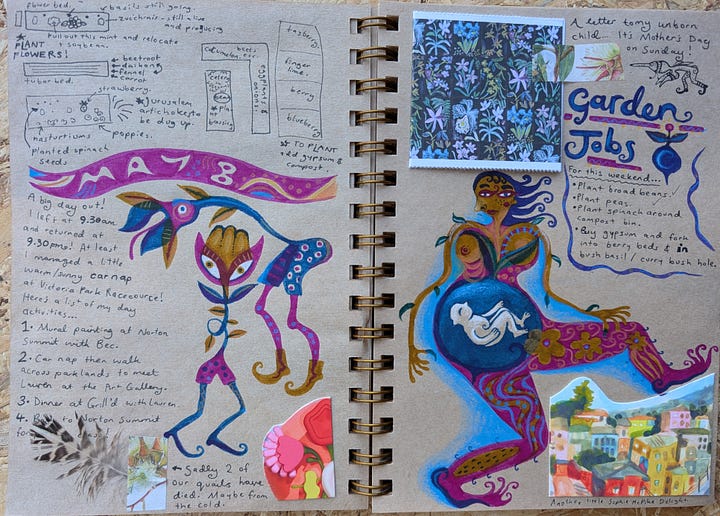 Flower bed.
basils still going.
zucchinis - still alive
and producing
Pull out this mint and relocate
PLANT
FLOWERS!
& soybean.
beetroot
daikon
fennel
carrot
tuber bed.
strawberry.
Jerusalem
artichokes to
be dug up.
nasturtiums
poppies.
Planted spinach
seeds
beets
eggplants &
onions
tayberry
finger
lime.
berry
blueberry
TO PLANT
add gypsum &
compost.
MAY 8
A big day out!
I left at 9.30am
and returned at
9.30pm! At least
I managed a little
warm/sunny car nap
at Victoria Park Racecourse!
Here's a list of my day
activities...
1. Mural painting at Norton
Summit with Bec.
2. Car nap then walk
across parklands to meet
Lauren at the Art Gallery.
3. Dinner at Grill'd with Lauren.
4. Back to Norton Summit
for
← Sadly 2 of
our quails have
died. Maybe from
the cold.
A letter to my unborn
child... Its Mother's Day
on Sunday!
Garden
Jobs
For this weekend...
• Plant broad beans.
• Plant peas.
• Plant spinach around
compost bin.
• Buy gypsum and fork
into berry beds & in
bush basil / curry bush hole.
Another little Sophie McPike Delight.